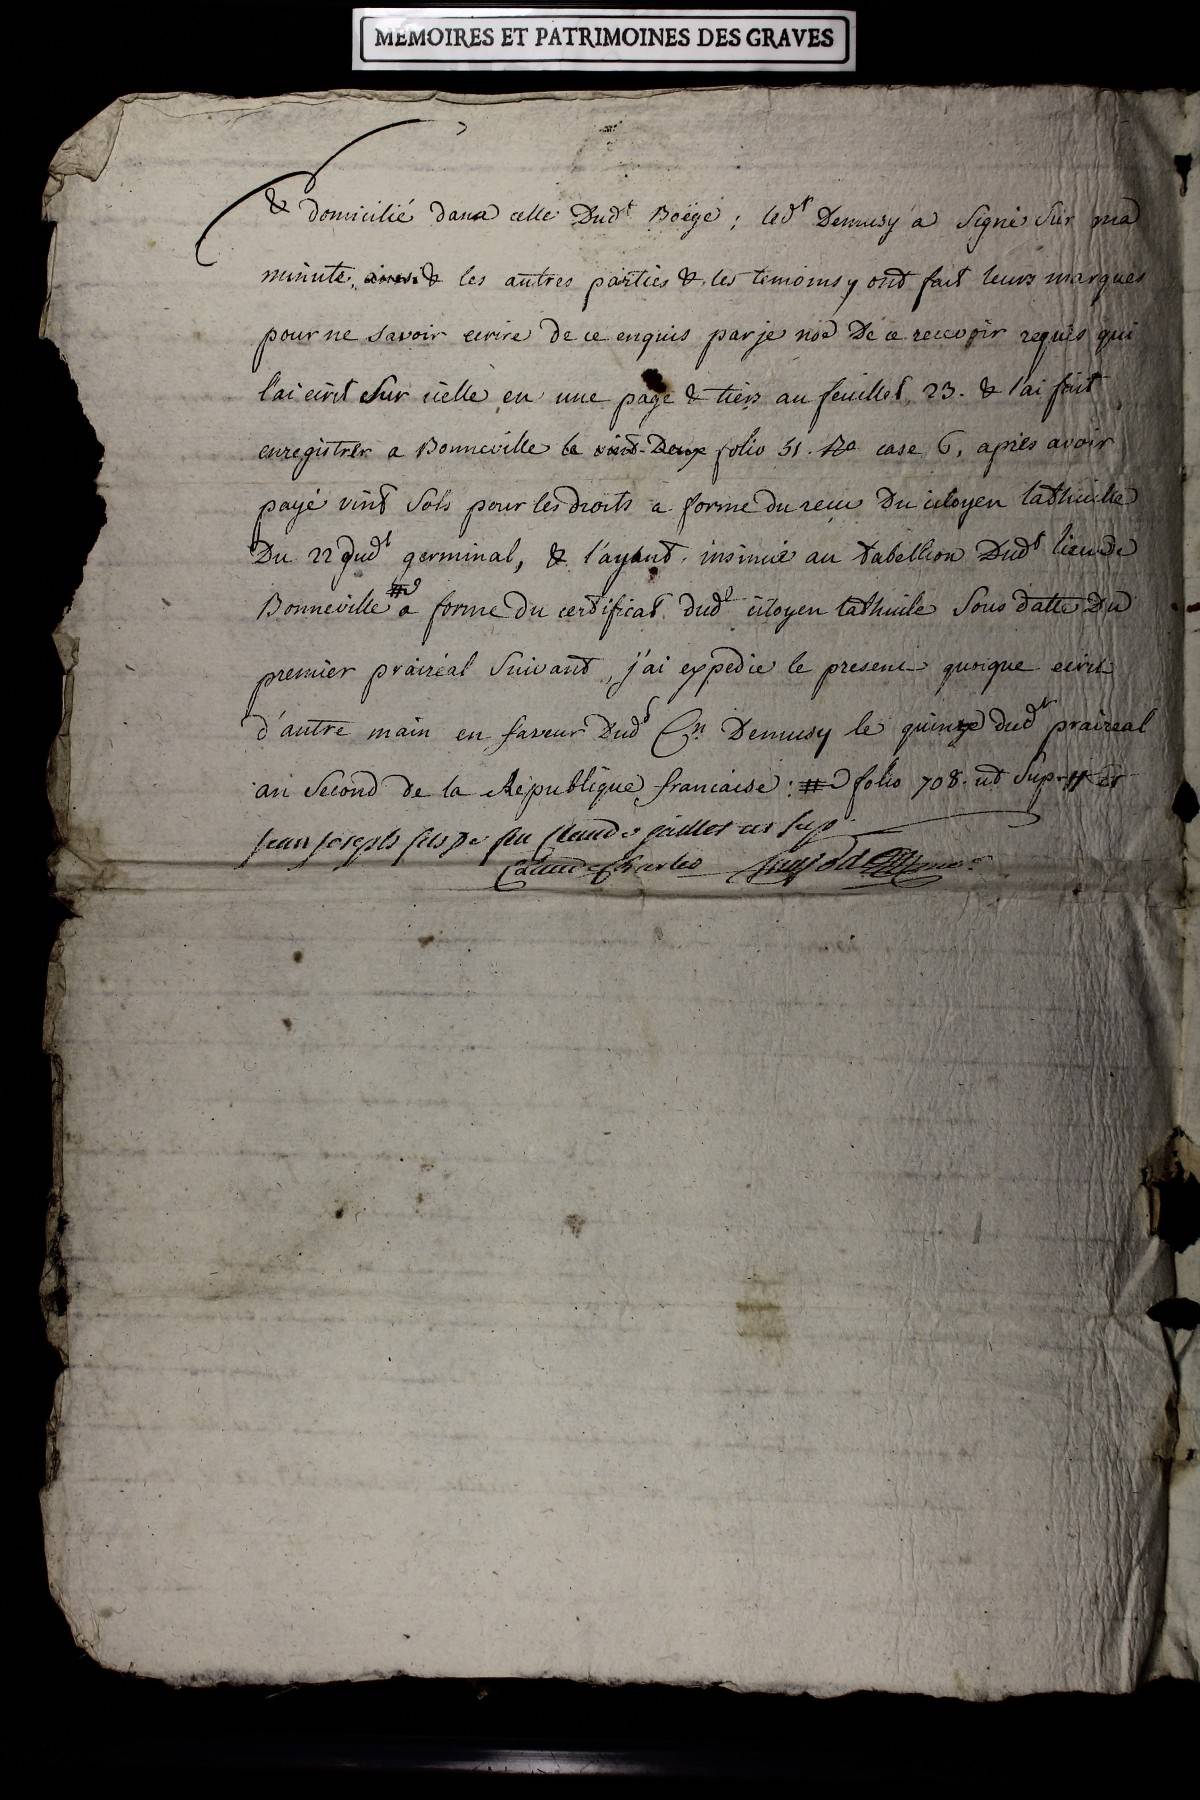 MÉMOIRES ET PATRIMOINES DES GRAVES
& domicilié dans celle Dud.t Boëge ; led.t Demusy a Signé Sur ma
minute, & les autres parties & les temoins y ont fait leurs marques
pour ne Savoir ecrire de ce enquis par je nôe De ce recevoir requis qui
l'ai ecrit Sur icelle en une page & tiers au feuillet 23. & l'ai fait
enregistrer a Bonneville le vint-Deux folio 51. R.o case 6, après avoir
payé vint Sols pour les droits a forme du recu Du citoyen lathuille
Du 22 dud.t germinal, & l'ayant insinué au tabellion Dud.t lieu de
Bonneville # a forme du certificat dud.t citoyen lathuile Sous datte Du
premier prairéal Suivant, j'ai expedié le present quoique ecrit
d'autre main en faveur Dud.t C.n Demusy le quinze dud.t praireal
an Second de la République francaise : # folio 708. ut Sup. # et
jean joseph fils De feu Claude gaillet ut Sup
Claude Charles